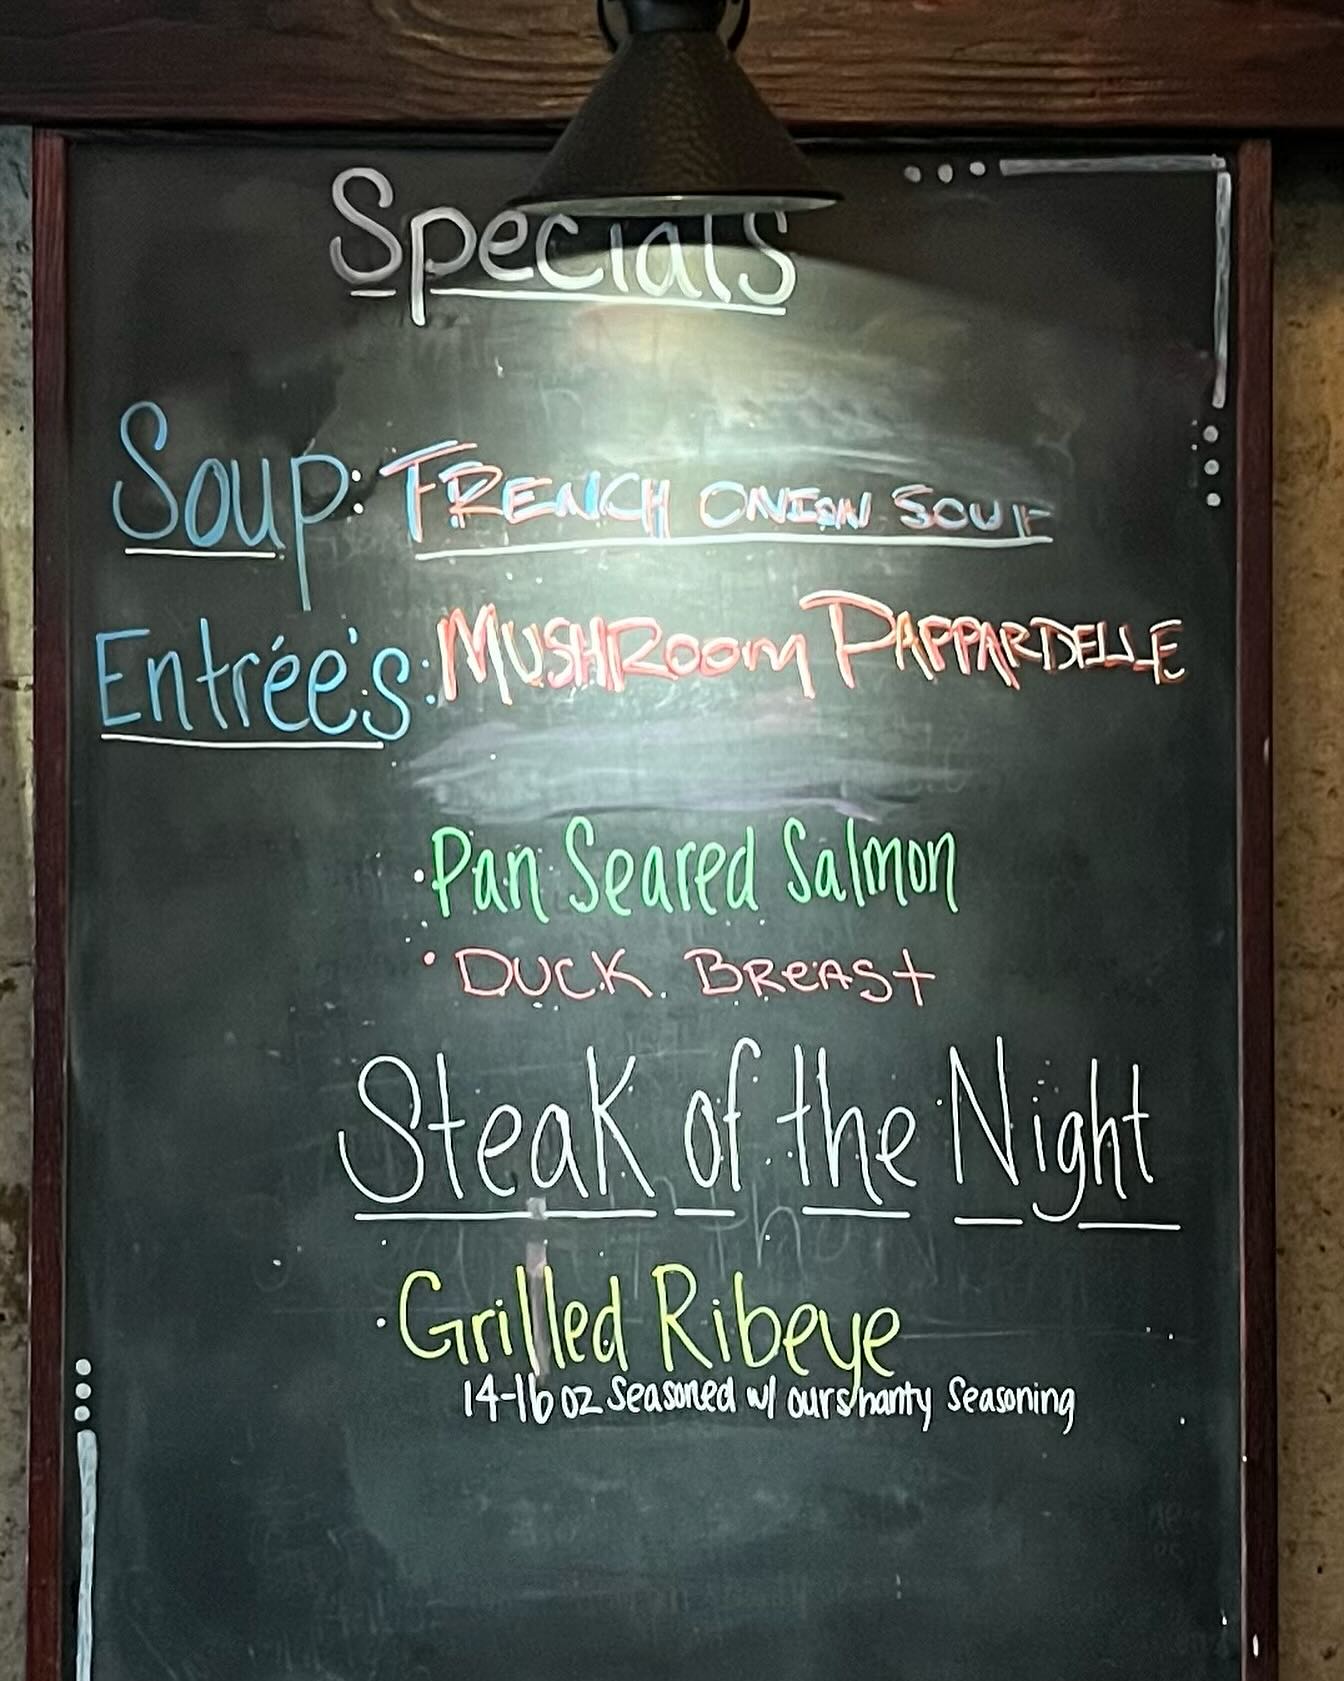 Specials
Soup: FRENCH ONION SOUP
Entrée's: MUSHROOM PAPPARDELLE
• Pan Seared Salmon
• DUCK BREAST
Steak of the Night
• Grilled Ribeye
14-16 oz Seasoned w/ our shanty Seasoning